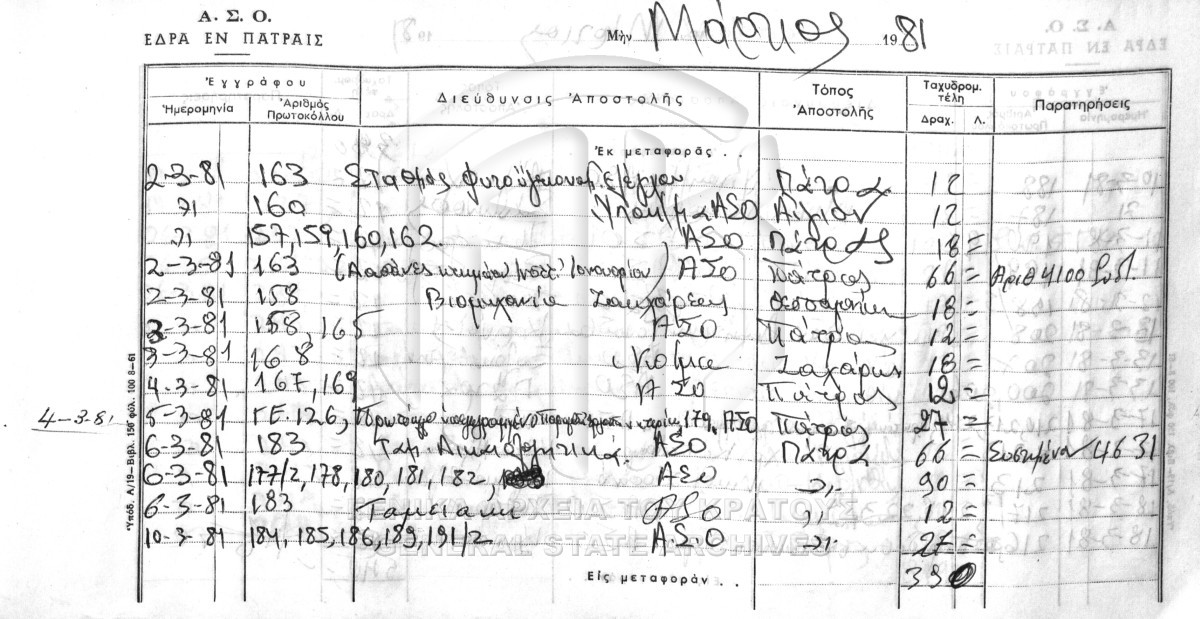 Α. Σ. Ο.
ΕΔΡΑ ΕΝ ΠΑΤΡΑΙΣ
Μὴν Μάρτιος 1981
Ἐγγράφου
Ἡμερομηνία Ἀριθμὸς Πρωτοκόλλου Διεύθυνσις Ἀποστολῆς Τόπος Ἀποστολῆς Ταχυδρομ. τέλη Δραχ. Λ. Παρατηρήσεις
Ἐκ μεταφορᾶς . .
2-3-81 163 Σταθμός φυτοϋγειονομ. Ελέγχου Πάτρα 12
71 160 ΑΣΟ Αίγιον 12
71 157, 159, 160, 162. ΑΣΟ Πάτρας 18 =
2-3-81 163 ( Ιανουαρίου) ΑΣΟ Πάτρας 66 = Αριθ 4100
2-3-81 158 Βιομηχανία Ζακχάρεως Θεσσαλονίκη 18 =
3-3-81 158, 165 ΑΣΟ Πάτρας 12 =
3-3-81 168 Ζαχάρως 18 =
4-3-81 167, 169 ΑΣΟ Πάτρας 12 =
4-3-81
5-3-81 ΓΕ. 126, 179, ΑΣΟ Πάτρας 27 =
6-3-81 183 Ταμ. Δικαιολογητικά. ΑΣΟ Πάτρα 66 = Συστημένα 4631
6-3-81 177/2, 178, 180, 181, 182, ΑΣΟ -,,- 90 =
6-3-81 183 Ταμειακή ΑΣΟ ,, 12 =
10-3-81 184, 185, 186, 189, 191/2 Α.Σ.Ο -,,- 27 =
Εἰς μεταφοράν . . 390
Ὑπόδ. Α/19-Βιβλ. 150 φύλ. 100 8-61
ΓΕΝΙΚΑ ΑΡΧΕΙΑ ΤΟΥ ΚΡΑΤΟΥΣ
GENERAL STATE ARCHIVES